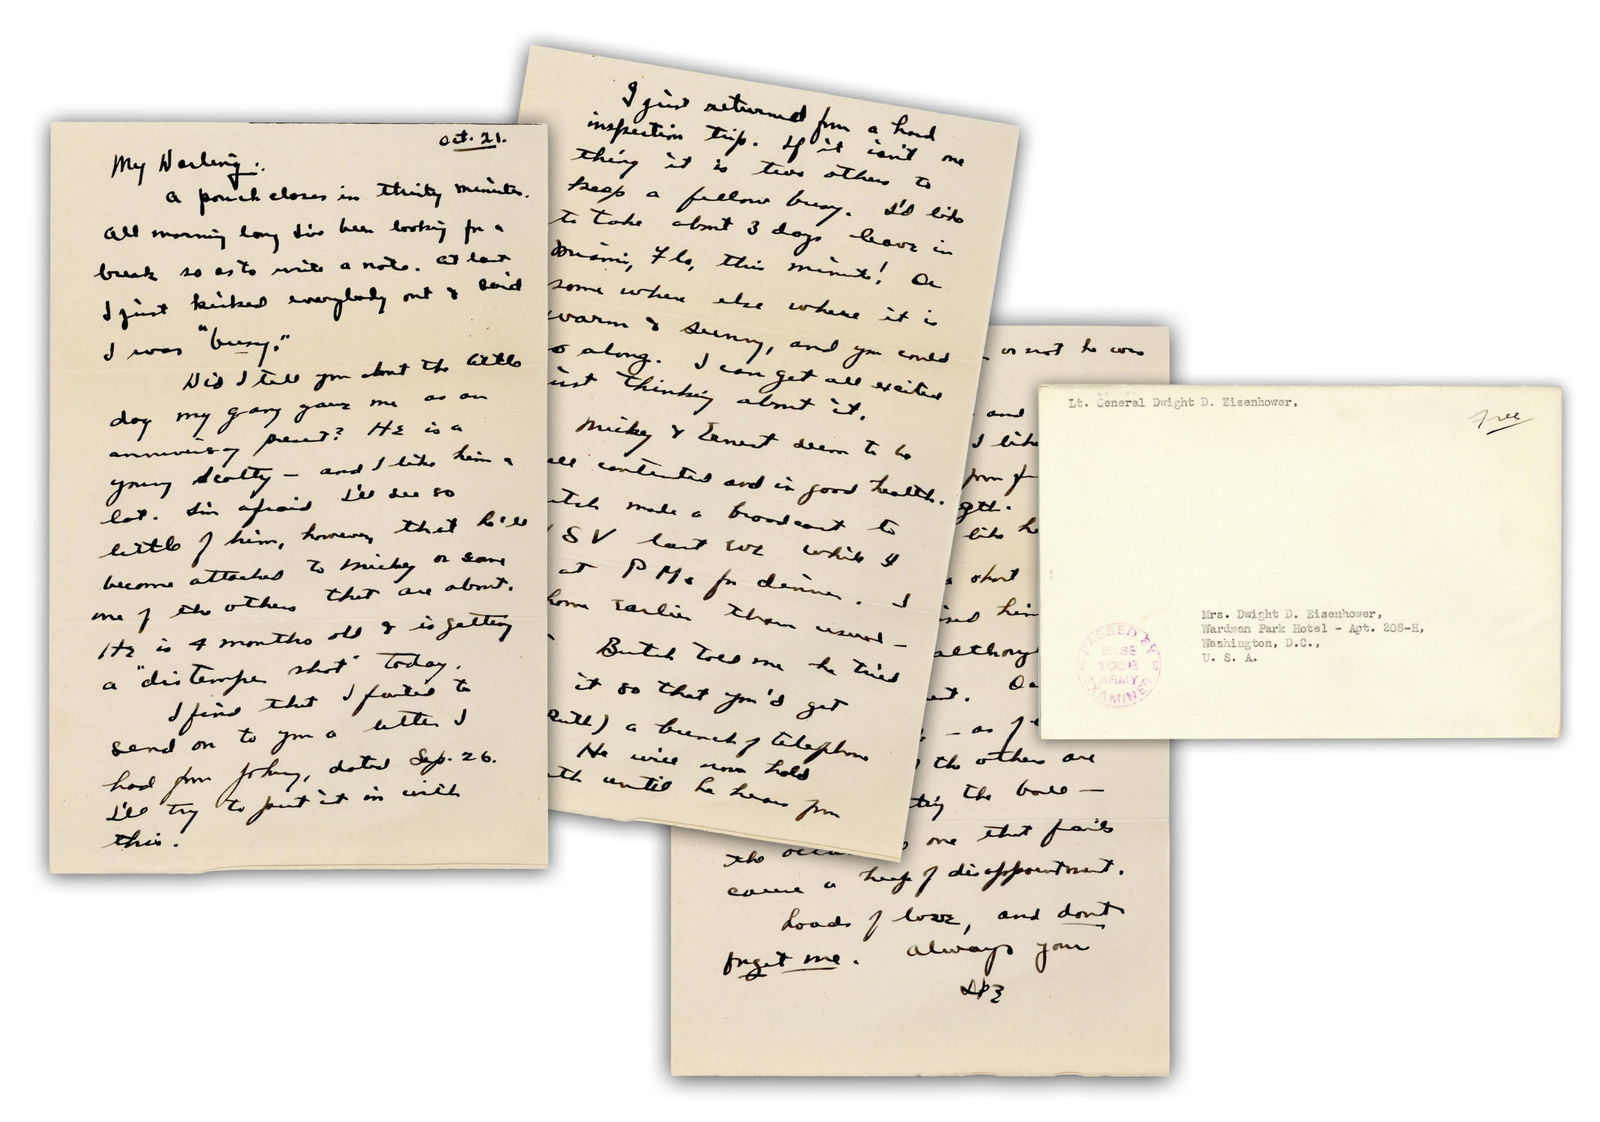 Oct. 21.
My Darling:
A pouch closes in thirty minutes.
All morning long I've been looking for a
break so as to write a note. At last
I just kicked everybody out & said
I was "busy."
Did I tell you about the little
dog my gang gave me as an
anniversary present? He is a
young Scotty — and I like him a
lot. I'm afraid I'll see so
little of him, however, that he'll
become attached to Mickey or some
one of the others that are about.
He is 4 months old & is getting
a "distemper shot" today.
I find that I failed to
send on to you a letter I
had from Johnny, dated Sep. 26.
I'll try to put it in with
this.
I just returned from a hard
inspection trip. If it isn't one
thing it is two others to
keep a fellow busy. I'd like
to take about 3 days leave in
Miami, Fla, this minute! Or
some where else where it is
warm & sunny, and you could
o along. I can get all excited
ust thinking about it.
Mickey & Ernest seem to be
all contented and in good health.
utch made a broadcast to
SV last we while I
at PMs for dinner. I
home earlier than usual —
Butch told me he tried
it so that you'd get
Ruth) a bunch of telephone
He will now hold
th until he hears from
or not he was
and
I like
from
gth.
like he
a short
ised him
although
ent.
— as
the others are
the ball —
the one that fails
cause a heap of disappointment.
Loads of love, and don't
forget me. Always your
DDE
Lt. General Dwight D. Eisenhower,
Free
Mrs. Dwight D. Eisenhower,
Wardman Park Hotel - Apt. 208-H,
Washington, D.C.,
U. S. A.
PASSED BY
BASE
1002
ARMY
EXAMINER